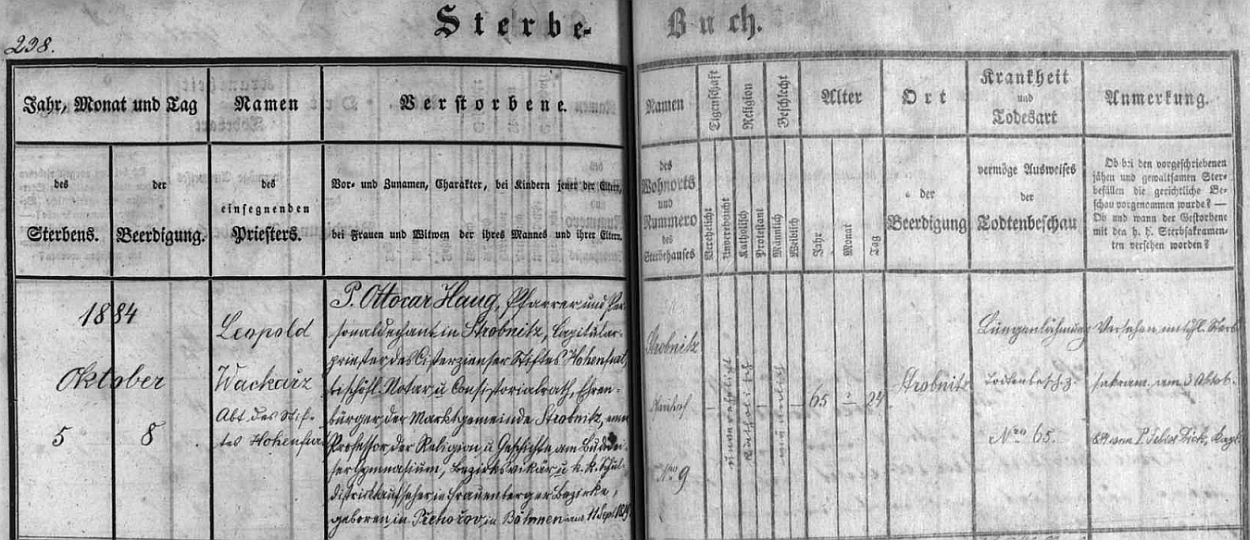 Sterbe- Buch.
238.
Jahr, Monat und Tag
Namen
Verstorbene.
Namen
Eigenschaft
Religion
Geschlecht
Alter
Ort
Krankheit
und
Todesart
Anmerkung.
des
Sterbens.
der
Beerdigung.
des
einsegnenden
Priesters.
Vor- und Zunamen, Charakter, bei Kindern jener der Eltern,
bei Frauen und Witwen der ihres Mannes und ihrer Eltern.
des
Wohnorts
und
Nummero
des
Sterbehauses
Verehelicht
Unverehelicht
Katholisch
Protestant
Männlich
Weiblich
Jahr
Monat
Tag
der
Beerdigung
vermöge Ausweises
der
Todtenbeschau
Ob bei den vorgeschriebenen
jähen und gewaltsamen Ster-
befällen die gerichtliche Be-
schau vorgenommen wurde? —
Ob und wann der Gestorbene
mit den h. h. Sterbsakramen-
ten versehen worden?
1884
Oktober
5 8
Leopold
Wackarz
Abt des Stif-
tes Hohenfurt
P. Ottocar Haug, Pfarrer und Per-
sonaldechant in Strobnitz, Capitular-
priester des Cisterzienser Stiftes Hohenfurt,
bischöfl. Notar u. Consistorialrath, Ehren-
bürger der Marktgemeinde Strobnitz, em.
Professor der Religion u. Geschichte am Budwei-
ser Gymnasium, Bezirksvikär u. k. k. Schul-
distriktsaufseher im Frauenberger Bezirke,
geboren in in Böhmen am 11 Sept.
Strobnitz
Nro 9
unverehelicht
katholisch
männlich
65 - 24
Strobnitz
Lungenlähmung
Nro 65.
Versehen mit hl. Sterb
sakram. am 3 Oktob.